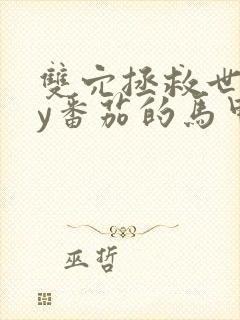 雙穴拯救世
y番茄的馬甲
巫哲